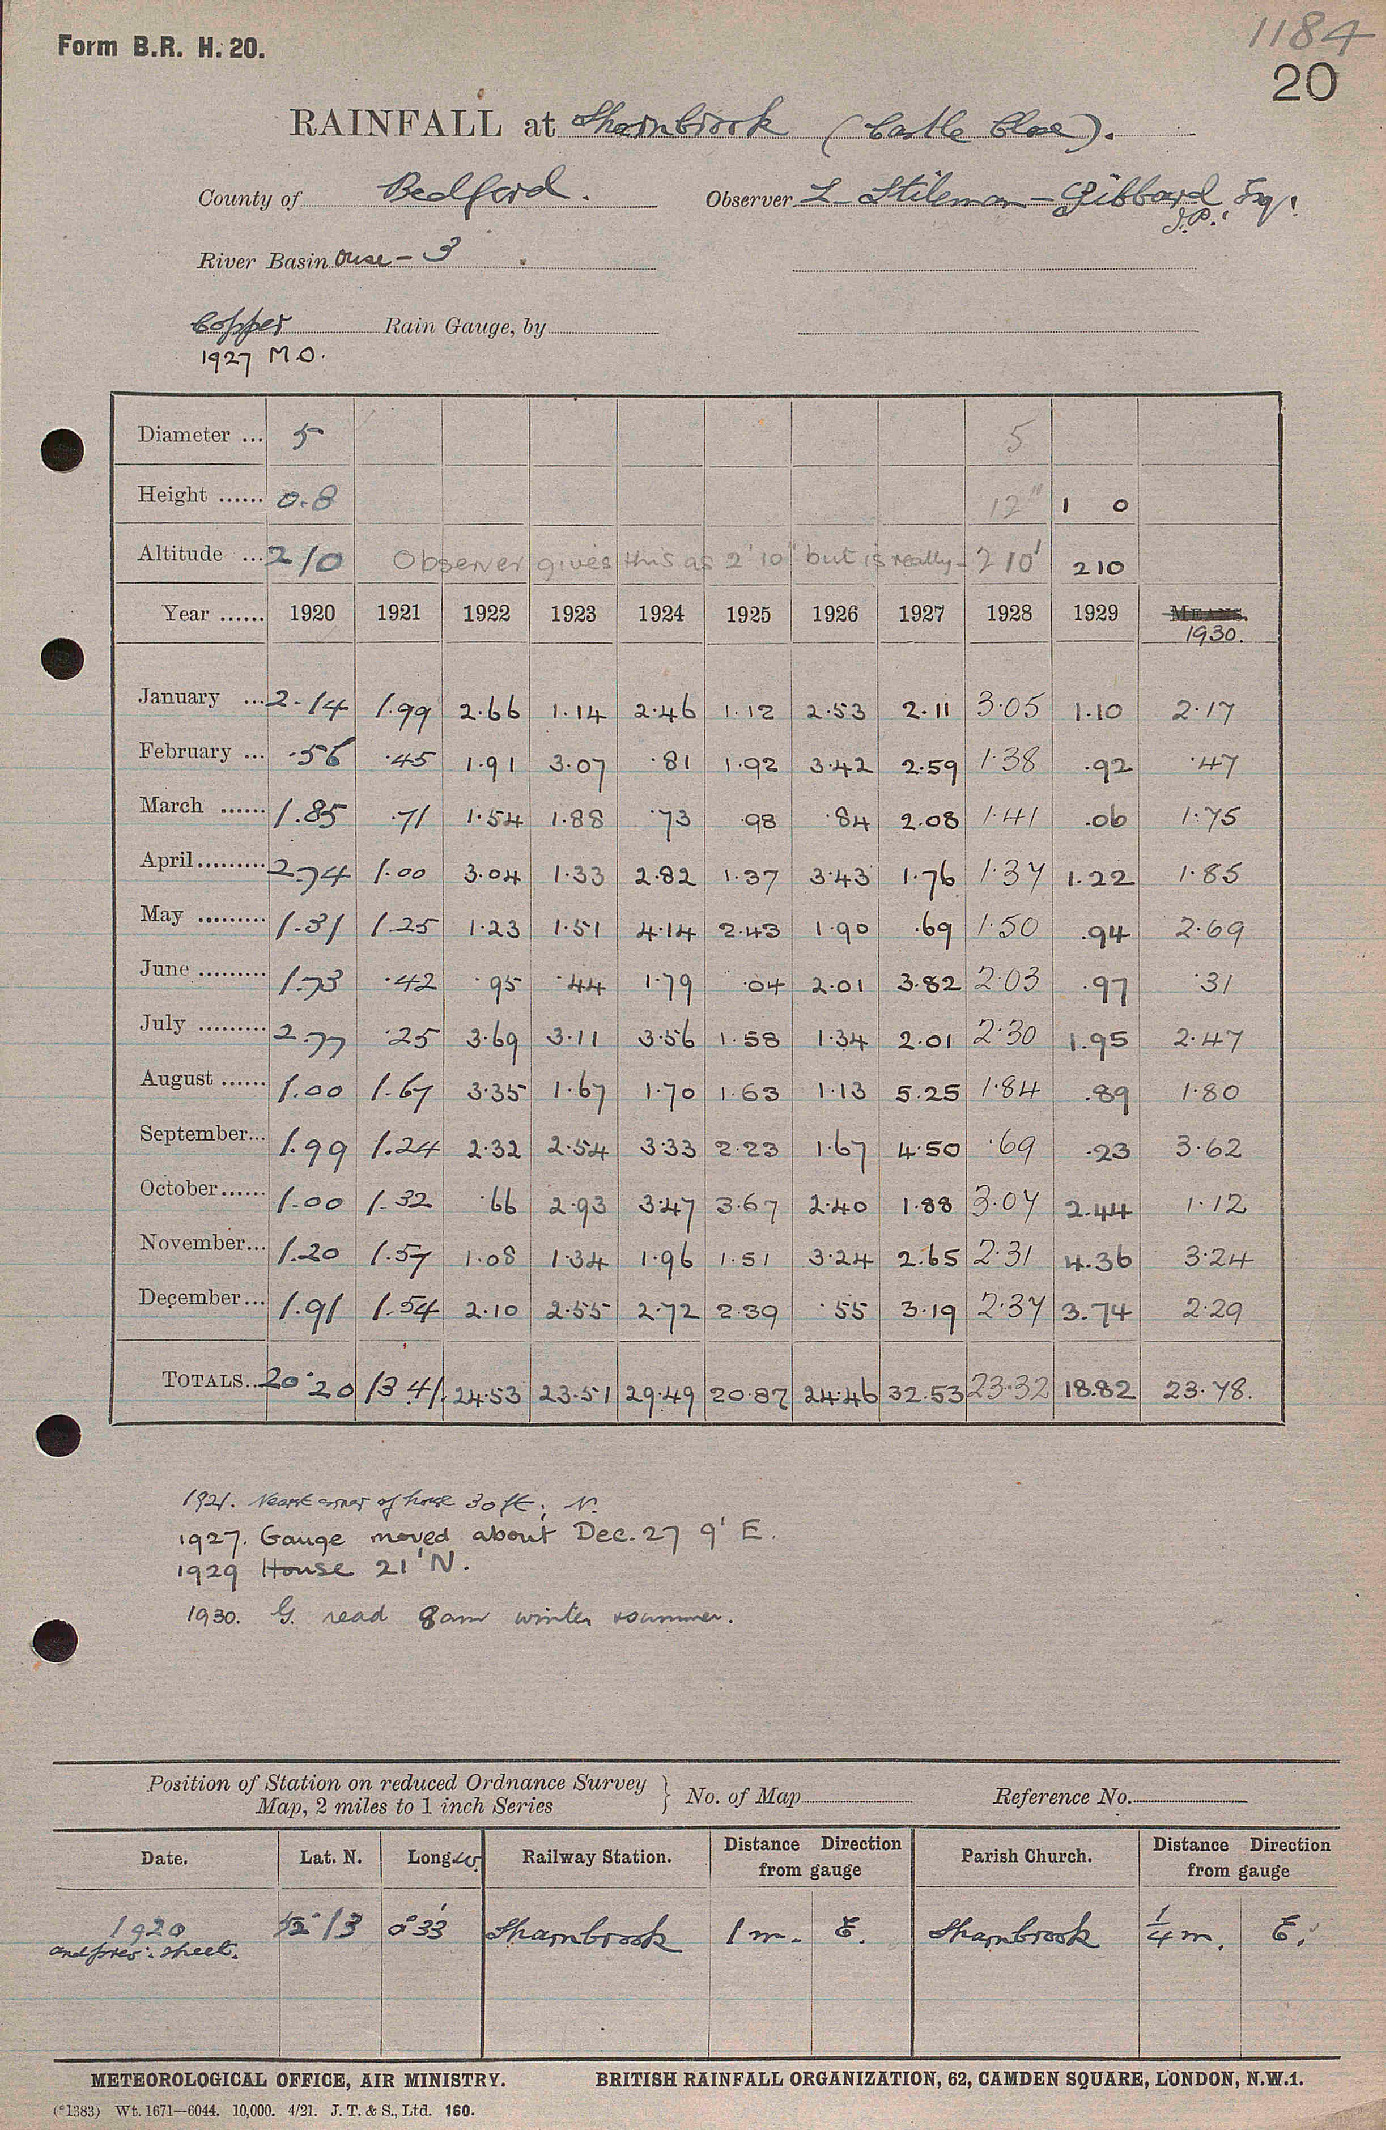 1184
Form B.R. H. 20.
20
RAINFALL at Sharnbrook (Castle Close).
County of Bedford. Observer L. Stileman-Gibbard Esq.
J.P.
River Basin Ouse - 3
Copper Rain Gauge, by
1927 M.O.
Diameter ... 5 5
Height ...... 0.8 12" 1 0
Altitude ... 210 Observer gives this as 2' 10" but is really 210' 210
Year ...... 1920 1921 1922 1923 1924 1925 1926 1927 1928 1929 MEANS.
1930.
January ... 2.14 1.99 2.66 1.14 2.46 1.12 2.53 2.11 3.05 1.10 2.17
February ... .56 .45 1.91 3.07 .81 1.92 3.42 2.59 1.38 .92 .47
March ...... 1.85 .71 1.54 1.88 .73 .98 .84 2.08 1.41 .06 1.75
April ......... 2.74 1.00 3.04 1.33 2.82 1.37 3.43 1.76 1.37 1.22 1.85
May ......... 1.31 1.25 1.23 1.51 4.14 2.43 1.90 .69 1.50 .94 2.69
June ......... 1.73 .42 .95 .44 1.79 .04 2.01 3.82 2.03 .97 .31
July ......... 2.77 .25 3.69 3.11 3.56 1.58 1.34 2.01 2.30 1.95 2.47
August ...... 1.00 1.67 3.35 1.67 1.70 1.63 1.13 5.25 1.84 .89 1.80
September... 1.99 1.24 2.32 2.54 3.33 2.23 1.67 4.50 .69 .23 3.62
October ...... 1.00 1.32 .66 2.93 3.47 3.67 2.40 1.88 3.07 2.44 1.12
November... 1.20 1.57 1.08 1.34 1.96 1.51 3.24 2.65 2.31 4.36 3.24
December... 1.91 1.54 2.10 2.55 2.72 2.39 .55 3.19 2.37 3.74 2.29
TOTALS.. 20.20 13.41 24.53 23.51 29.49 20.87 24.46 32.53 23.32 18.82 23.78.
1921. Nearest corner of house 30 ft; N.
1927. Gauge moved about Dec. 27 9' E.
1929 House 21' N.
1930. G. read 8am winter & summer.
Position of Station on reduced Ordnance Survey
Map, 2 miles to 1 inch Series } No. of Map Reference No.
Date. Lat. N. Long W. Railway Station. Distance Direction from gauge Parish Church. Distance Direction from gauge
1920 52° 13 0° 33' Sharnbrook 1 m. E. Sharnbrook 1/4 m. E.
and prev. sheet.
METEOROLOGICAL OFFICE, AIR MINISTRY. BRITISH RAINFALL ORGANIZATION, 62, CAMDEN SQUARE, LONDON, N.W.1.
(*1383) Wt. 1671—6044. 10,000. 4/21. J. T. & S., Ltd. 160.